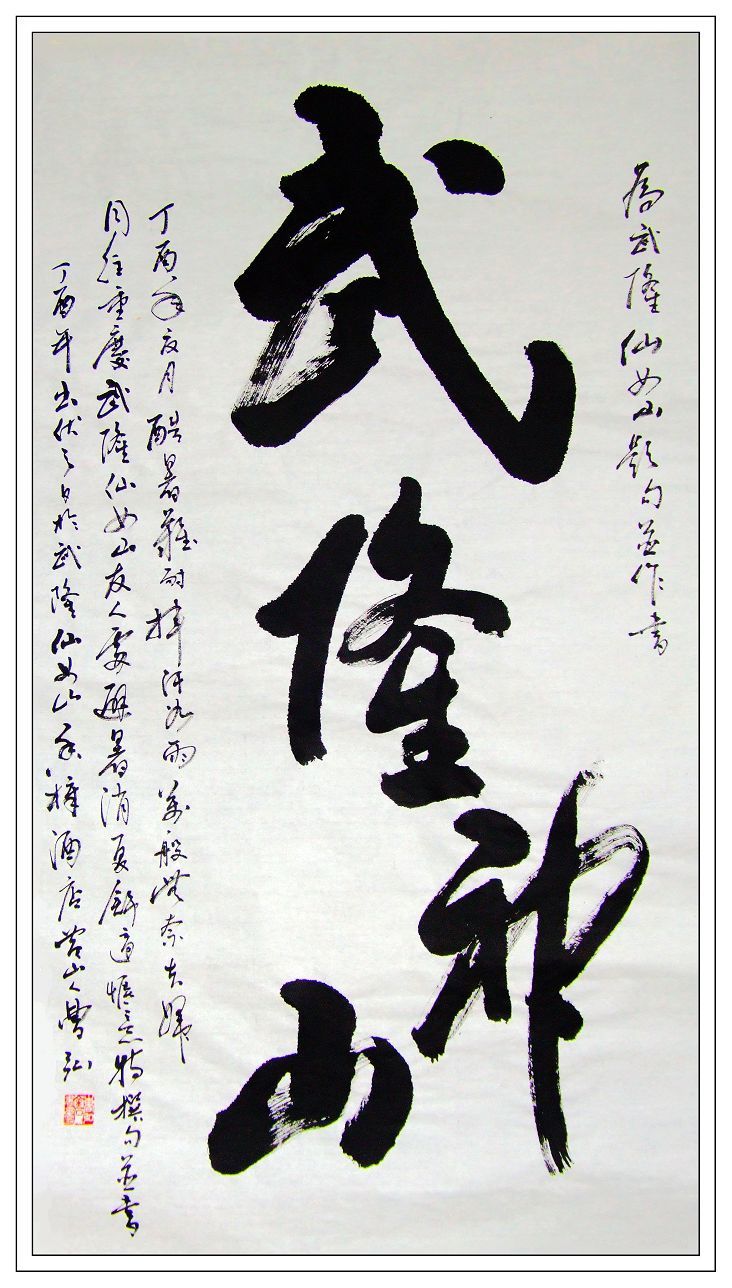 為武隆仙女山題句並作書
武隆神山
丁酉年夏月酷暑難耐揮汗如雨萬般無奈夫婦
同往重慶武隆仙女山友人處避暑消夏舒適愜意特撰句並書
丁酉年出伏之日於武隆仙女山香樟酒店 山人曹